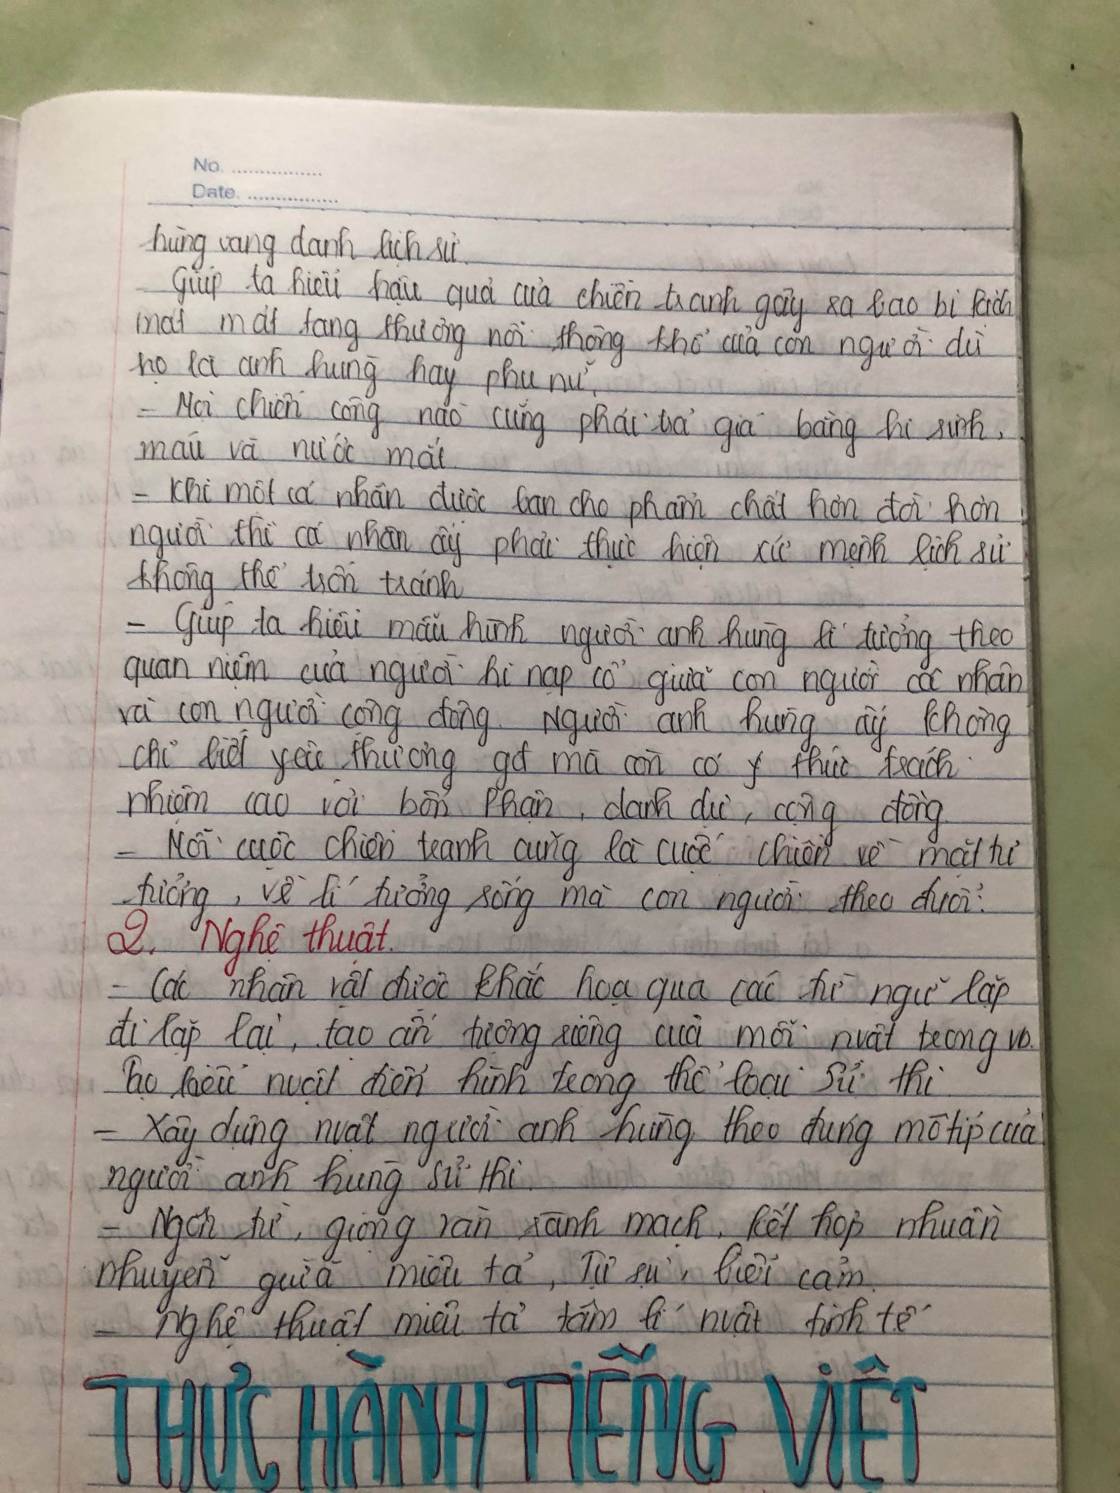 No. ................
Date. ................
hùng vang danh lịch sử
- Giúp ta hiểu hậu quả của chiến tranh gây ra bao bi kịch
mất mát tang thương nỗi thống khổ của con người dù
họ là anh hùng hay phụ nữ.
- Mọi chiến công nào cũng phải trả giá bằng hi sinh,
máu và nước mắt
- Khi một cá nhân được ban cho phẩm chất hơn đời hơn
người thì cá nhân ấy phải thực hiện sứ mệnh lịch sử
không thể trốn tránh
- Giúp ta hiểu mẫu hình người anh hùng lí tưởng theo
quan niệm của người hi nạp cổ giữa con người các nhân
và con người cộng đồng. Người anh hùng ấy không
chỉ biết yêu thương gđ mà còn có ý thức trách
nhiệm cao với bổn phận, danh dự, cộng đồng
- Mỗi cuộc chiến tranh cũng là cuộc chiến về mặt tư
tưởng, về lí tưởng sống mà con người theo đuổi.
2. Nghệ thuật.
- Các nhân vật được khắc hoạ qua các từ ngữ lặp
đi lặp lại, tạo ấn tượng riêng của mỗi nvật trong vb.
họ kiểu nvật điển hình trong thể loại Sử thi
- Xây dựng nvật người anh hùng theo đúng môtip của
người anh hùng sử thi.
- Ngôn từ, giọng văn rành mạch, kết hợp nhuần
nhuyễn giữa miêu tả, Tự sự, biểu cảm.
- Nghệ thuật miêu tả tâm lí nvật tinh tế
THỰC HÀNH TIẾNG VIỆT